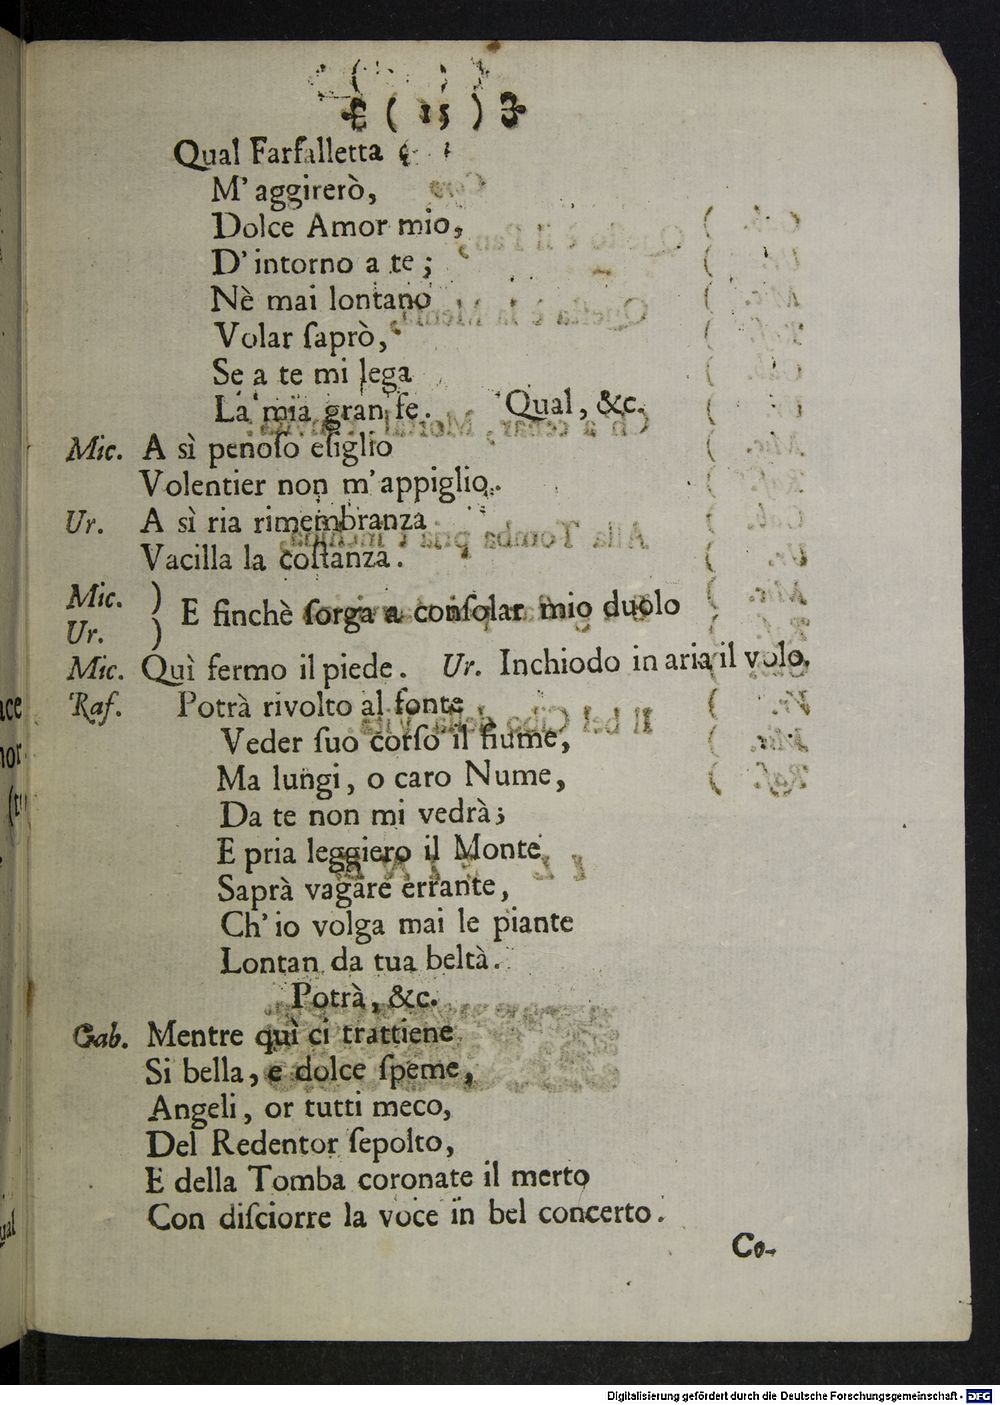 ( 15 )
Qual Farfalletta
M' aggirerò,
Dolce Amor mio,
D' intorno a te ;
Nè mai lontano
Volar ſaprò,
Se a te mi lega
La mia gran fe. Qual, &c.
Mic. A sì penoſo eſiglio
Volentier non m' appiglio.
Ur. A sì ria rimembranza
Vacilla la coſtanza.
Mic. )
Ur. ) E finchè ſorga a conſolar mio duolo
Mic. Quì fermo il piede. Ur. Inchiodo in aria il volo.
Raf. Potrà rivolto al fonte
Veder ſuo corſo il fiume,
Ma lungi, o caro Nume,
Da te non mi vedrà;
E pria leggiero il Monte
Saprà vagare errante,
Ch' io volga mai le piante
Lontan da tua beltà.
Potrà, &c.
Gab. Mentre quì ci trattiene
Si bella, e dolce ſpeme,
Angeli, or tutti meco,
Del Redentor ſepolto,
E della Tomba coronate il merto
Con diſciorre la voce in bel concerto.
Co-
Digitalisierung gefördert durch die Deutsche Forschungsgemeinschaft - DFG